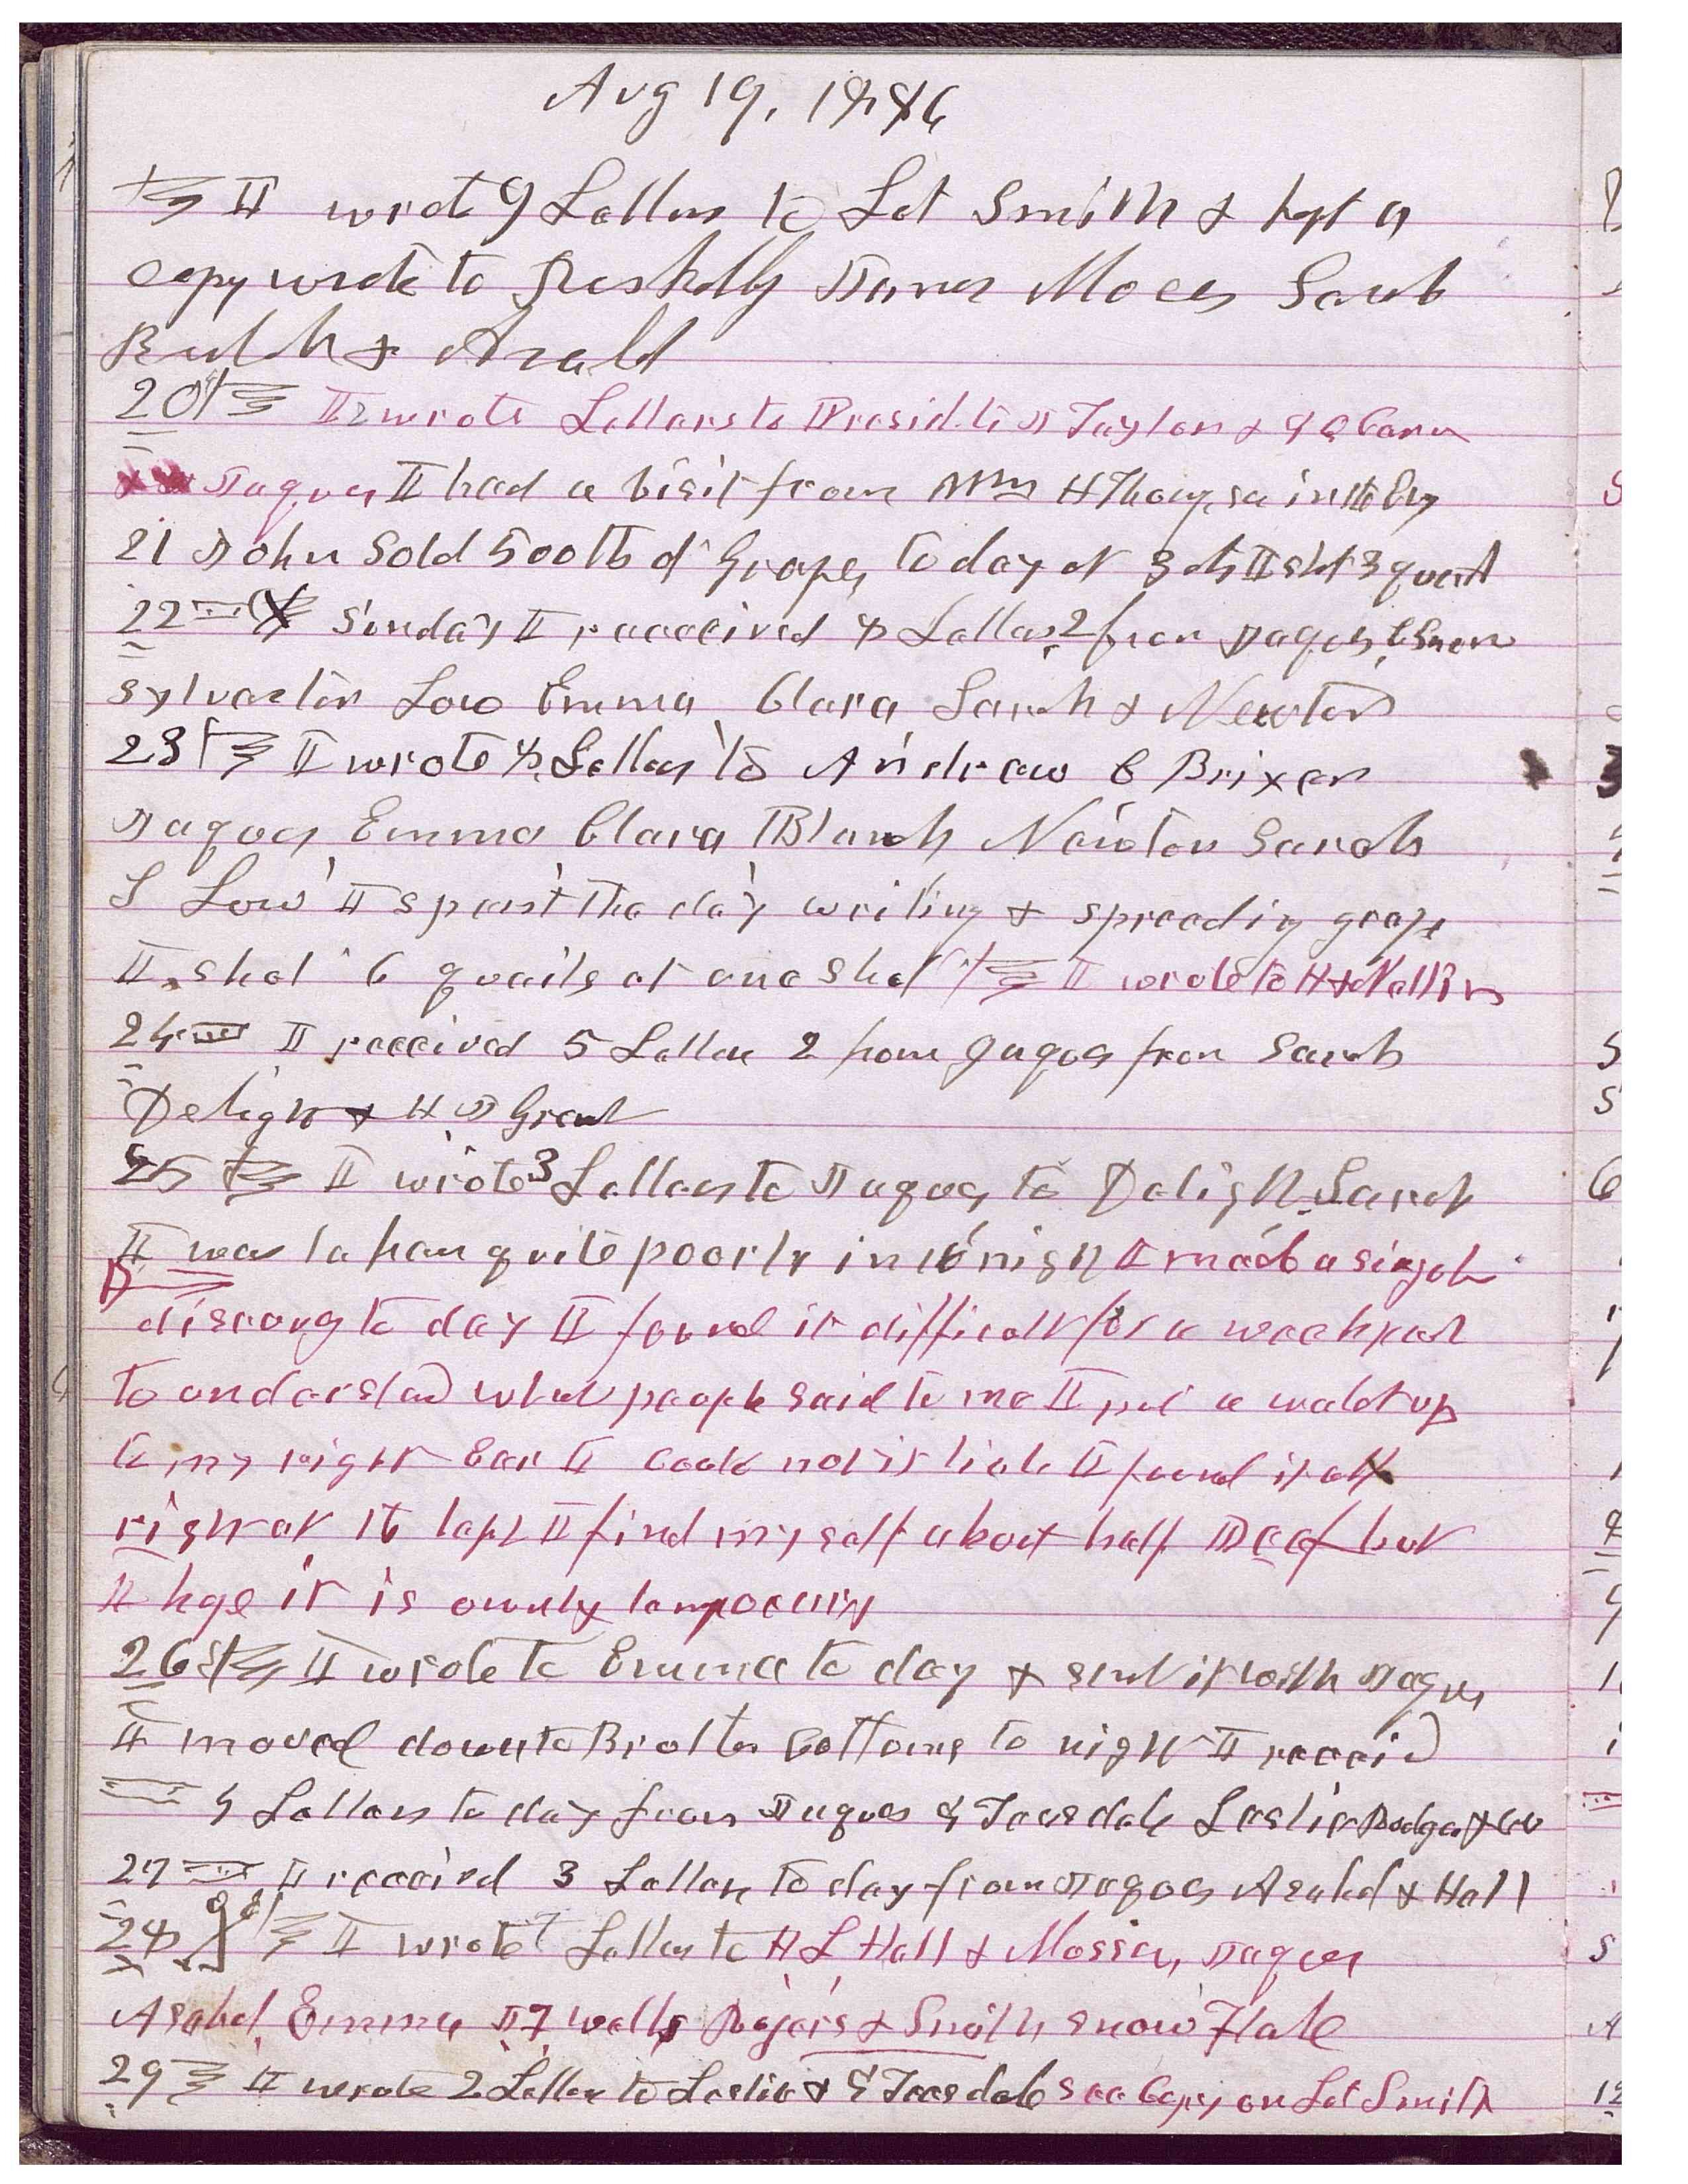 Aug 19, 1886
I wrote 9 Letters to Lot Smith & kept a
copy wrote to Sarah
20 I wrote Letters to Presidet J Taylor & G Q Canon
Jaques I had a visit from Mrs H Thompson in the Evg
21 John Sold 500 lb of Grapes to day at 3 cts I shot 3 quail
22 Sunday I recceived 8 Letters 2 from Jaques, E Snow
Sylvester Low Emma Clara Sarah & Newton
23 I wrote 8 Letters to Andrew C Brixen
Jaques Emma Clara Blanch Newton Sarah
S Low I spent the day writing & spreadig grape
I shot 6 quails at one shot I wrote to
24 I received 5 Letters 2 from Jaques from Sarah
Delight & H J Grant
25 I wrote 3 Letters to Jaques to Delight Sarah
I was taken quite poorly in th night I made a singuler
discovry to day I found it difficult for a week past
to understand what people said to me I put a watch up
to my right Ear I could not it tick I found it all
right at th left I find myself about half Deaf but
I hope it is ownly temporary
26 I wrote to Emma to day & sent it with Jaques
I moved down to Brother Cottoms to night I receivd
4 Letters to day from Jaques G Teasdale Leslie
27 I receivd 3 Letters to day from Jaques Asahel & Hall
28 I wrote 7 Letters to H L Hall & Mosier, Jaques
Asahel Emma J F Wells Rogers & Smith Snow Flake
29 I wrote 2 Letters to Leslie & G Teasdale see Copy on Lot Smith